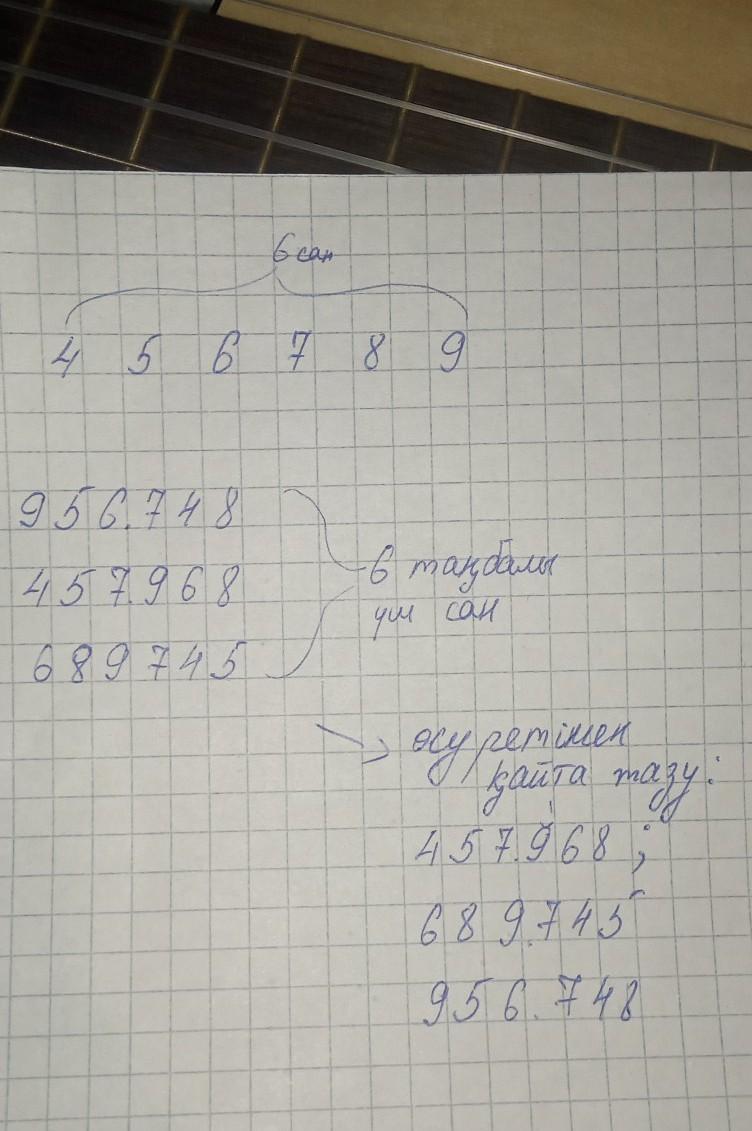 6 сан
4 5 6 7 8 9
956.748
457.968
689745
6 таңбалы
үш сан
өсу ретімен
қайта жазу:
457.968;
689.745
956.748